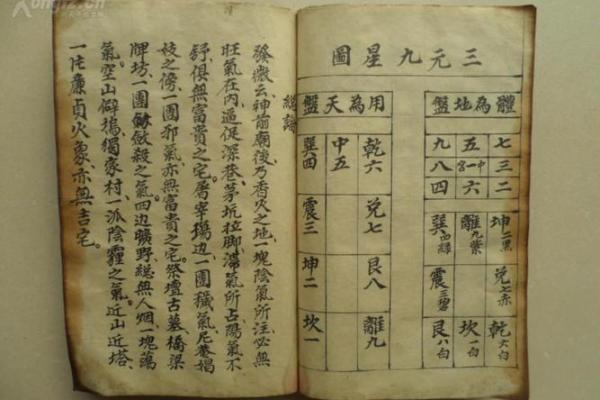 三元九星圖
體為地盤
七三二
五中一宮六
九八四
坤二黑
兌七赤
乾六白
離九紫
坎一白
巽四綠
震三碧
艮八白
用為天盤
乾六
兌七
艮八
離九
中五
巽四
震三
坤二
坎一
總論
發微云神前廟後乃香火之地一塊陰氣所注必無
旺氣在内逼促深巷茅坑拉脚滯氣所占陽氣不
舒俱無富貴之宅屠宰塲边一團穢氣尼菴娼
妓之傍一團邪氣亦無富貴之宅祭壇古墓橋梁
牌坊一團殺之氣四边曠野総無人烟一塊蕩
氣空山僻塢獨家村一派陰霾之氣近山近塔
一片廉貞火象亦無吉宅。